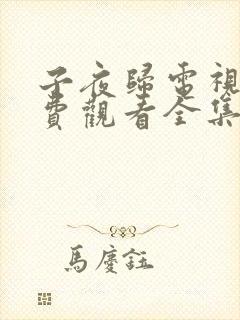 子夜歸電視
費觀看全集
馬慶鈺